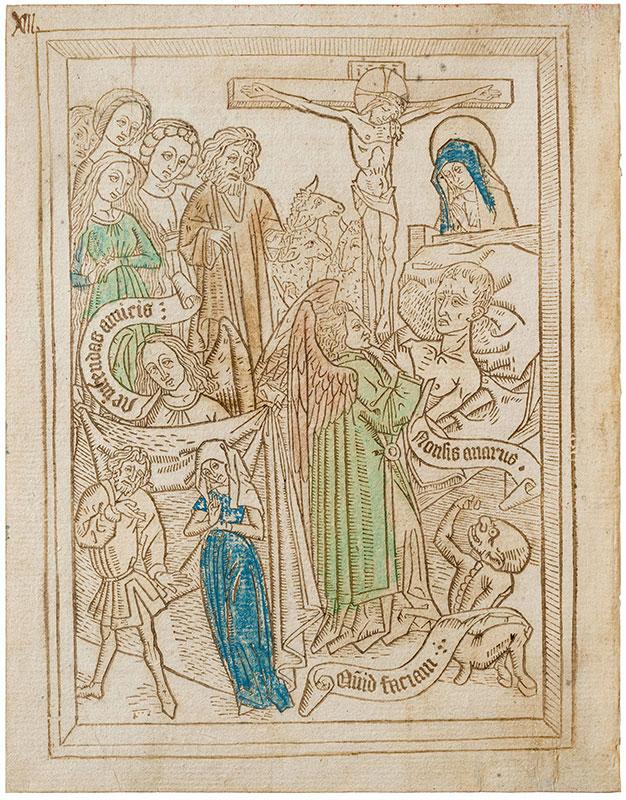 XIII.
Ne intendas amicis :
Nonsis auarus .
Quid faciam :